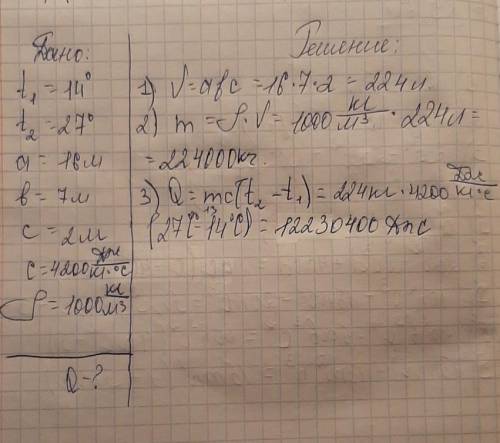 Дано:
t₁ = 14°
t₂ = 27°
a = 16м
b = 7м
c = 2м
c = 4200 Дж/кг·°C
ρ = 1000 кг/м³
Q - ?
Решение:
1) V = abc = 16·7·2 = 224 л.
2) m = ρ·V = 1000 кг/м³ · 224 л =
= 224000кг.
3) Q = mc(t₂ - t₁) = 224кг·4200 Дж/кг·°C
(27°C - 14°C) = 12230400 Дж